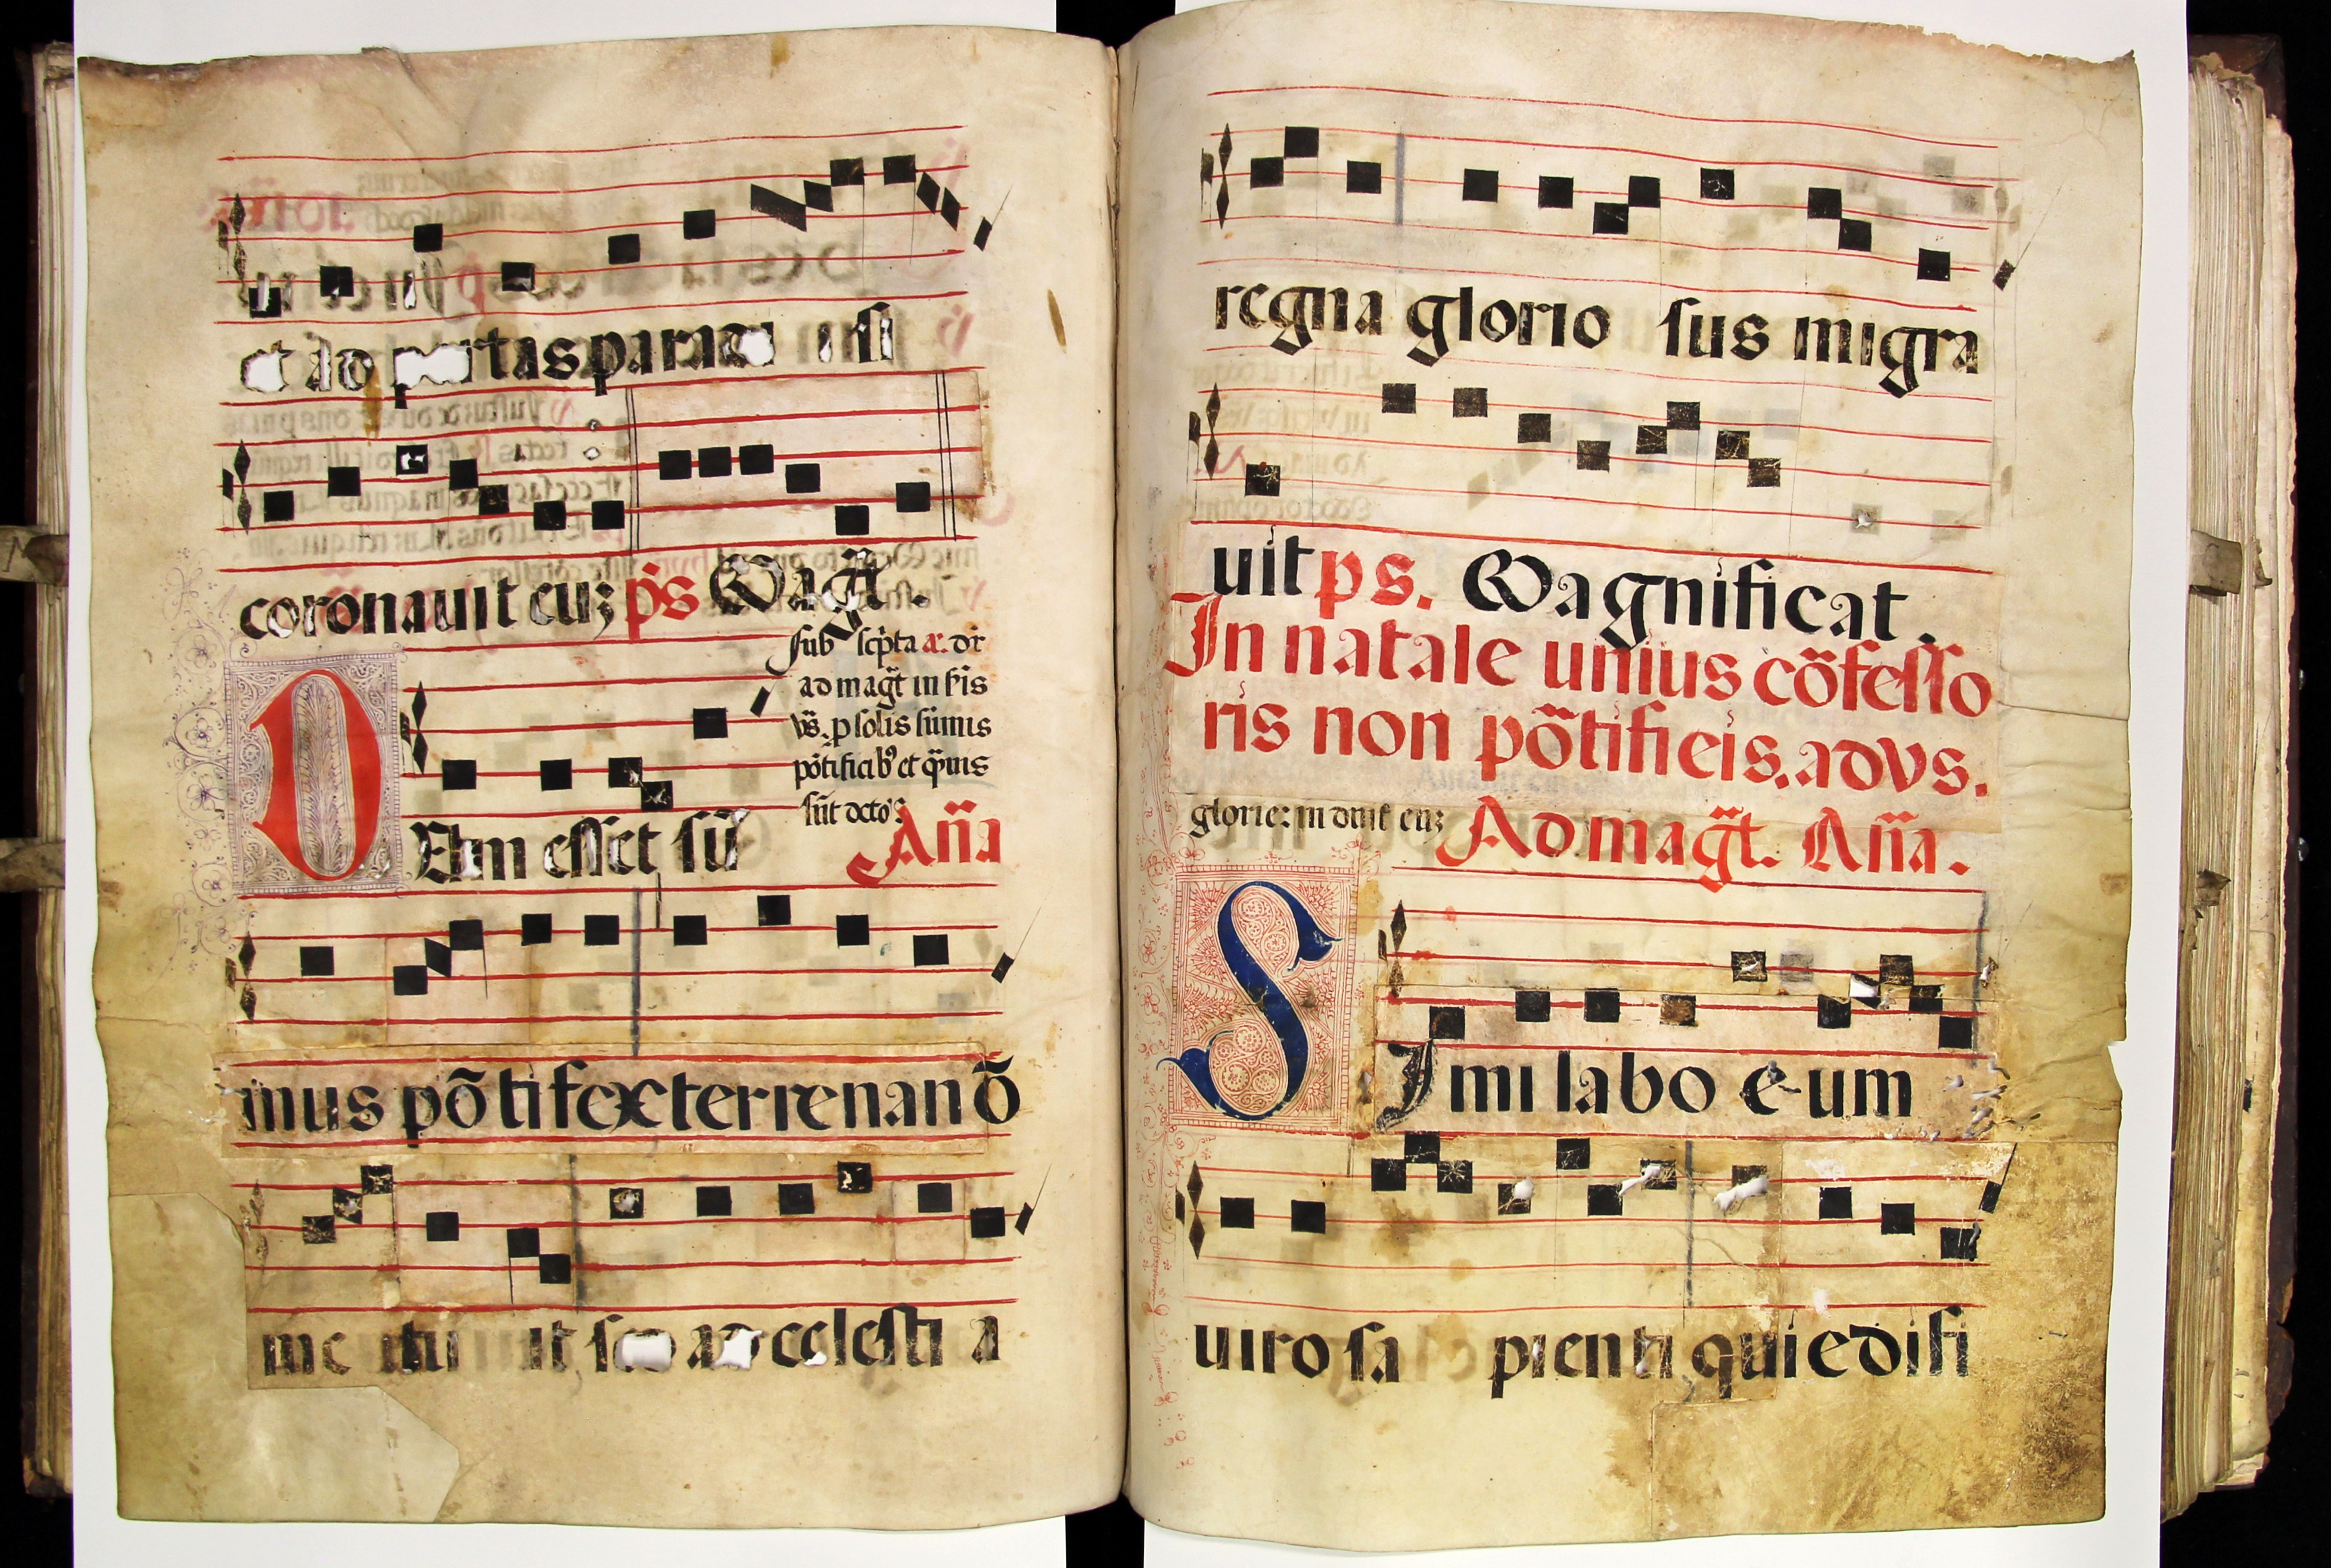 et ad portas paradi si
coronauit euz ps Magt.
sub scpta a. dr
ad magt in scis
vs. p solis sumis
pōtificib et quis
sūt doctos
Dum esset sū Aña
mus pōtifex terrena nō
me tu it sed ad celesti a
regna glorio sus migra
uit ps. Magnificat.
In natale unius cōfesso
ris non pōtificis. ad vs.
glorie: in duit euz Ad magt. Aña.
SImilabo eum
uiro sapienti qui edifi